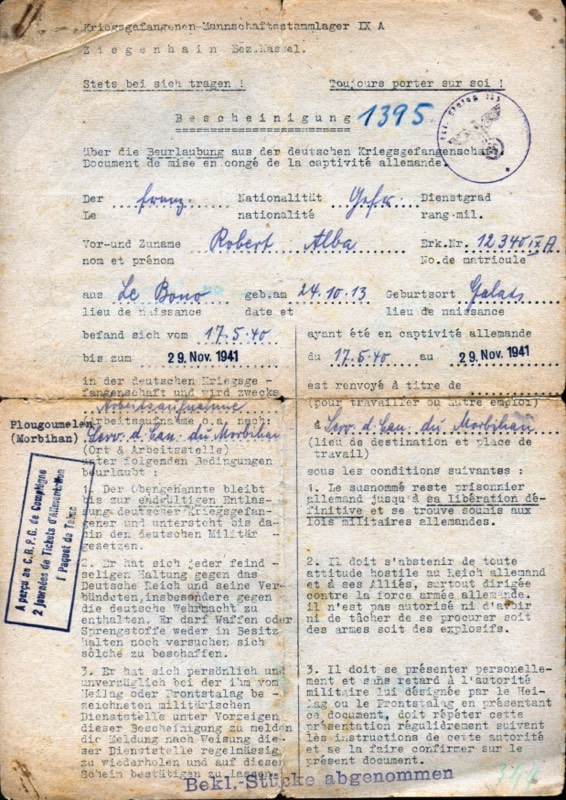 Kriegsgefangenen-Mannschaftsstammlager IX A
Ziegenhain Bez.Kassel.
Stets bei sich tragen ! Toujours porter sur soi !
Bescheinigung 1395
über die Beurlaubung aus der deutschen Kriegsgefangenschaft
Document de mise en congé de la captivité allemande.
Der franz. Nationalität Gefr. Dienstgrad
Le nationalité rang-mil.
Vor-und Zuname Robert Alba Erk.Nr. 12340 IX A
nom et prénom No.de matricule
aus Le Bono geb.am 24.10.13 Geburtsort Galats
lieu de naissance date et lieu de naissance
befand sich vom 17.5.40 ayant été en captivité allemande
bis zum 29. Nov. 1941 du 17.5.40 au 29. Nov. 1941
in der deutschen Kriegsge -
fangenschaft und wird zwecks
Arbeitsaufnahme
Arbeitsaufnahme o.a. nach:
Plougoumelen
(Morbihan)
Serv. d. Eau. du Morbihan
(Ort & Arbeitsstelle)
unter folgenden Bedingungen
beurlaubt
est renvoyé à titre de
(pour travailler ou autre emploi)
à Serv. d. Eau. du Morbihan
(lieu de destination et place de
travail)
sous les conditions suivantes :
A perçu au C.R.P.G. de Compiègne
2 journées de Tickets d'Alimentation
1 Paquet de Tabac
1. Der Obengenannte bleibt
bis zur endgültigen Entlas-
sung deutscher Kriegsgefan-
gener und untersteht bis da-
hin den deutschen Militär -
gesetzen.
1. Le susnommé reste prisonnier
allemand jusqu'à sa libération dé-
finitive et se trouve soumis aux
lois militaires allemandes.
2. Er hat sich jeder feind -
seligen Haltung gegen das
Deutsche Reich und seine Ver-
bündeten,insbesondere gegen
die deutsche Wehrmacht zu
enthalten. Er darf Waffen oder
Sprengstoffe weder in Besitz
halten noch versuchen sich
solche zu beschaffen.
2. Il doit s'abstenir de toute
attitude hostile au Reich allemand
et à ses Alliés, surtout dirigée
contre la force armée allemande.
il n'est pas autorisé ni d'avoir
ni de tâcher de se procurer soit
des armes soit des explosifs.
3. Er hat sich persönlich und
unverzüglich bei der ihm vom
Heilag oder Frontstalag be -
zeichneten militärischen
Dienststelle unter Vorzeigen
dieser Bescheinigung zu melden
die Meldung nach Weisung die-
ser Dienststelle regelmässig
zu wiederholen und auf diesem
Schein bestätigen zu lassen.
3. Il doit se présenter personelle-
ment et sans retard à l'autorité
militaire lui désignée par le Hei-
lag ou le Frontstalag en présentant
ce document, doit répéter cette
présentation régulièrement suivent
les instructions de cette autorité
et se la faire confirmer sur le
présent document.
Bekl.-Stücke abgenommen